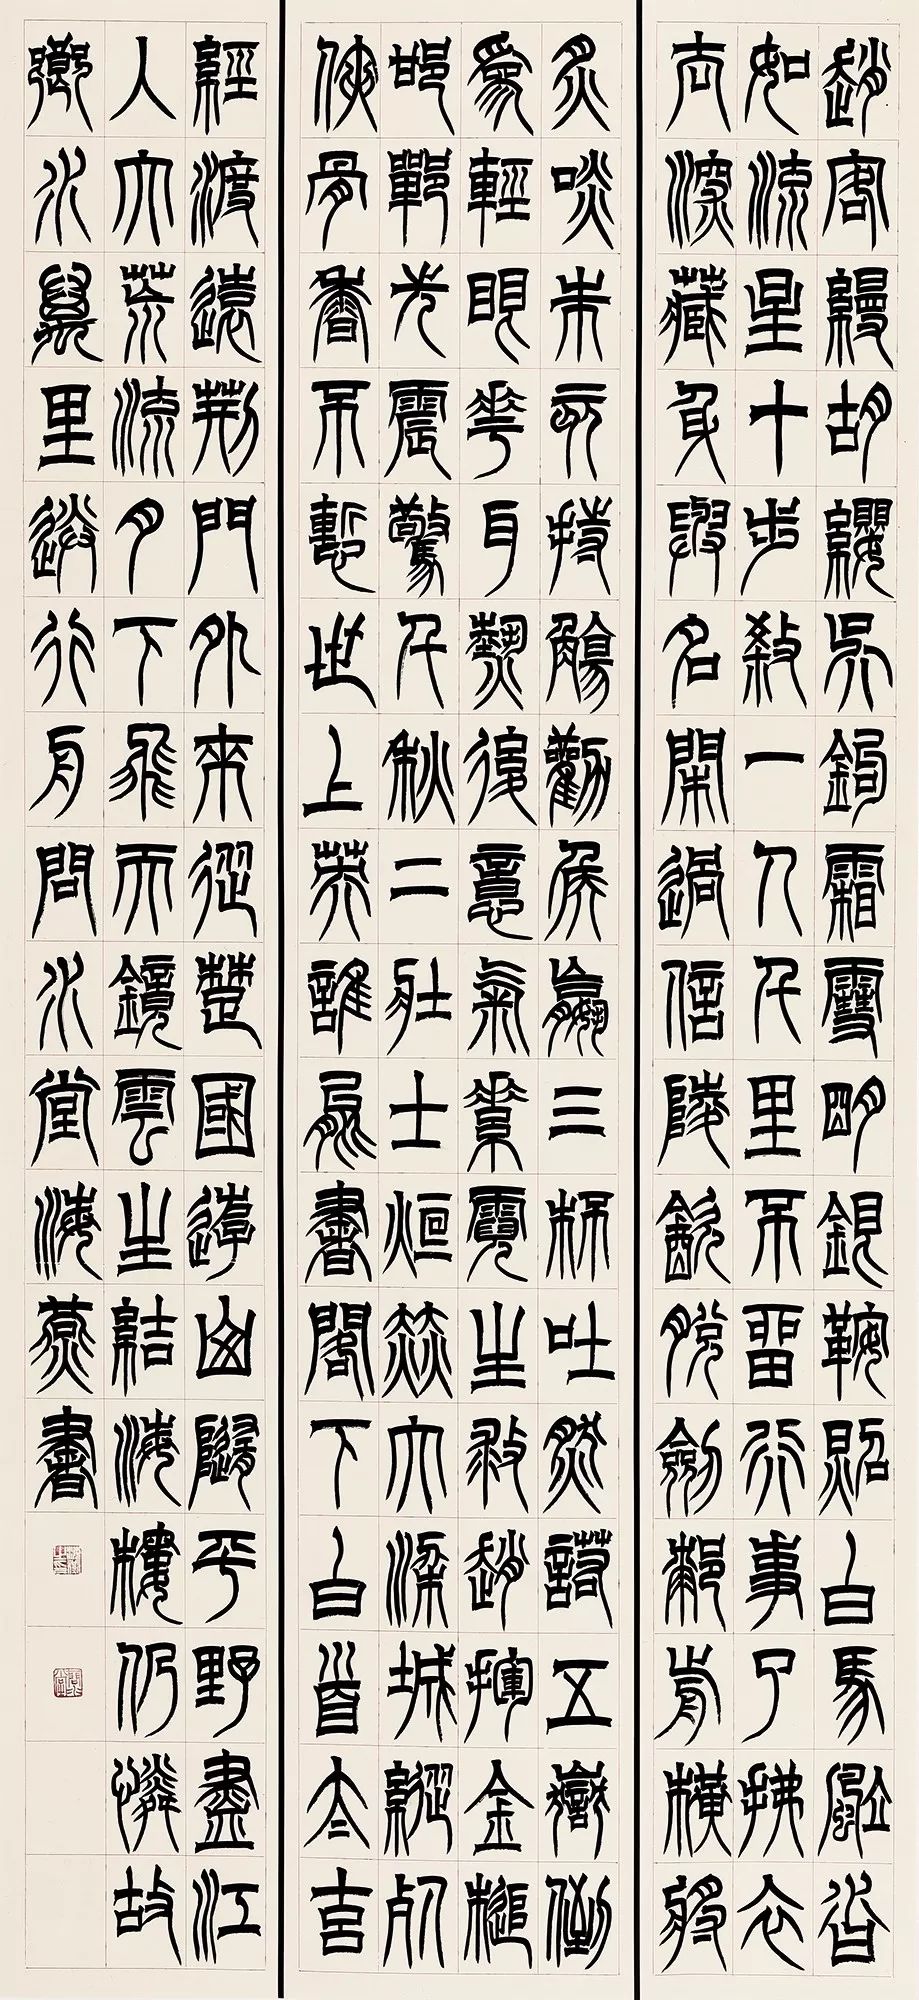 趙客縵胡纓吳鉤霜雪明銀鞍照白馬颯沓
如流星十步殺一人千里不留行事了拂衣
去深藏身與名閑過信陵飲脫劍膝前橫將
炙啖朱亥持觴勸侯嬴三杯吐然諾五嶽倒
為輕眼花耳熱後意氣素霓生救趙揮金槌
邯鄲先震驚千秋二壯士烜赫大梁城縱死
俠骨香不慙世上英誰能書閣下白首太玄
經渡遠荊門外來從楚國遊山隨平野盡江
入大荒流月下飛天鏡雲生結海樓仍憐故
鄉水萬里送行舟問水堂海燕書